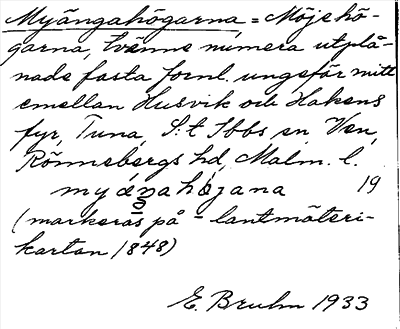 Myängahögarna = Möjehö-
garna, tvänne numera utplå-
nade fasta fornl. ungefär mitt
emellan Husvik och Hakens
fyr, Tuna, S:t Ibbs sn, Ven,
Rönnebergs hd, Malm. l.
myángahȯjana 19
(markeras på lantmäteri-
kartan 1848)
E. Bruhn 1933